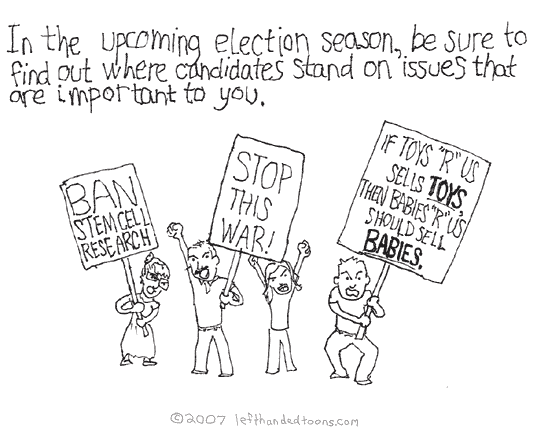 In the upcoming election season, be sure to
find out where candidates stand on issues that
are important to you.
BAN
STEM CELL
RESEARCH
STOP
THIS
WAR!
IF TOYS "R" US
SELLS TOYS,
THEN BABIES "R" US
SHOULD SELL
BABIES.
©2007 lefthandedtoons.com